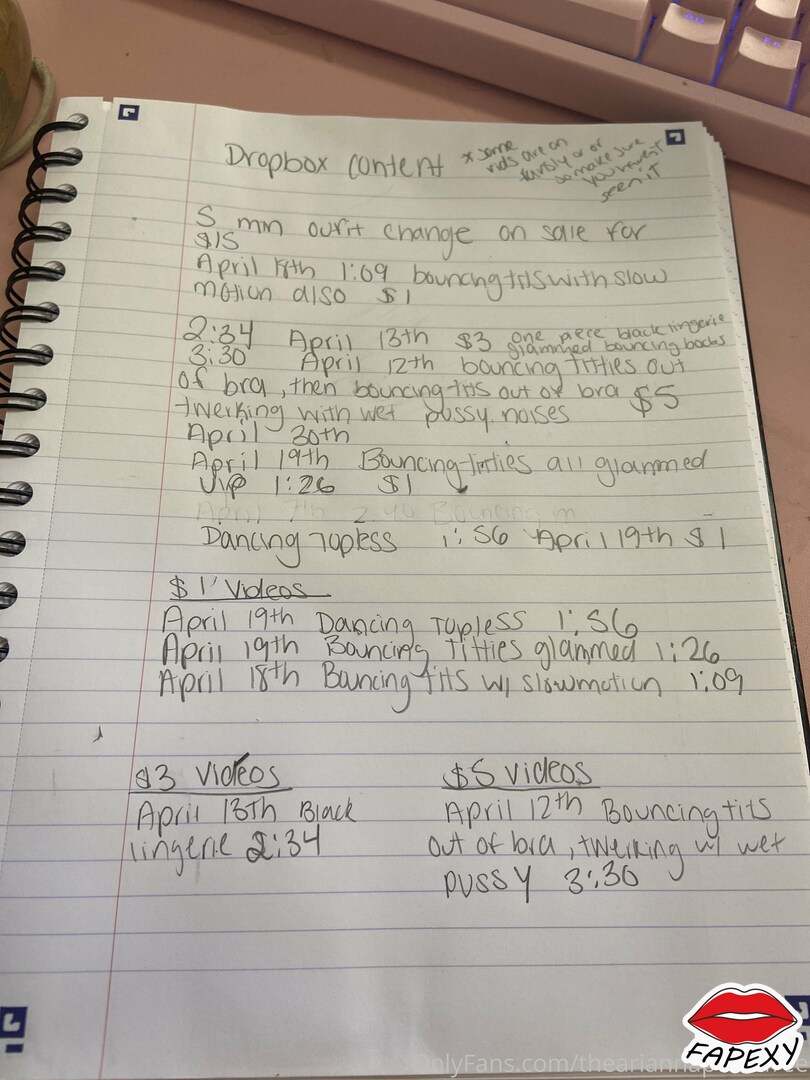 Dropbox content
* some
vids are on
fansly or of
so make sure
you haven't
seen it
5 min outfit change on sale for
$15
April 18th 1:09 bouncing tits with slow
motion also $1
2:34 April 13th $3 one piece black lingerie
glammed bouncing boobs
3:30 April 12th bouncing titties out
of bra, then bouncing tits out of bra $5
twerking with wet pussy noises
April 30th
April 19th Bouncing titties all glammed
up 1:26 $1
April 7th 2:40 Bouncing
Dancing Topless 1:56 April 19th $1
$1 Videos
April 19th Dancing Topless 1:56
April 19th Bouncing Titties glammed 1:26
April 18th Bouncing tits w/ slowmotion 1:09
$3 Videos
April 13th Black
lingerie 2:34
$5 videos
April 12th Bouncing tits
out of bra, twerking w/ wet
pussy 3:30
FAPEXY